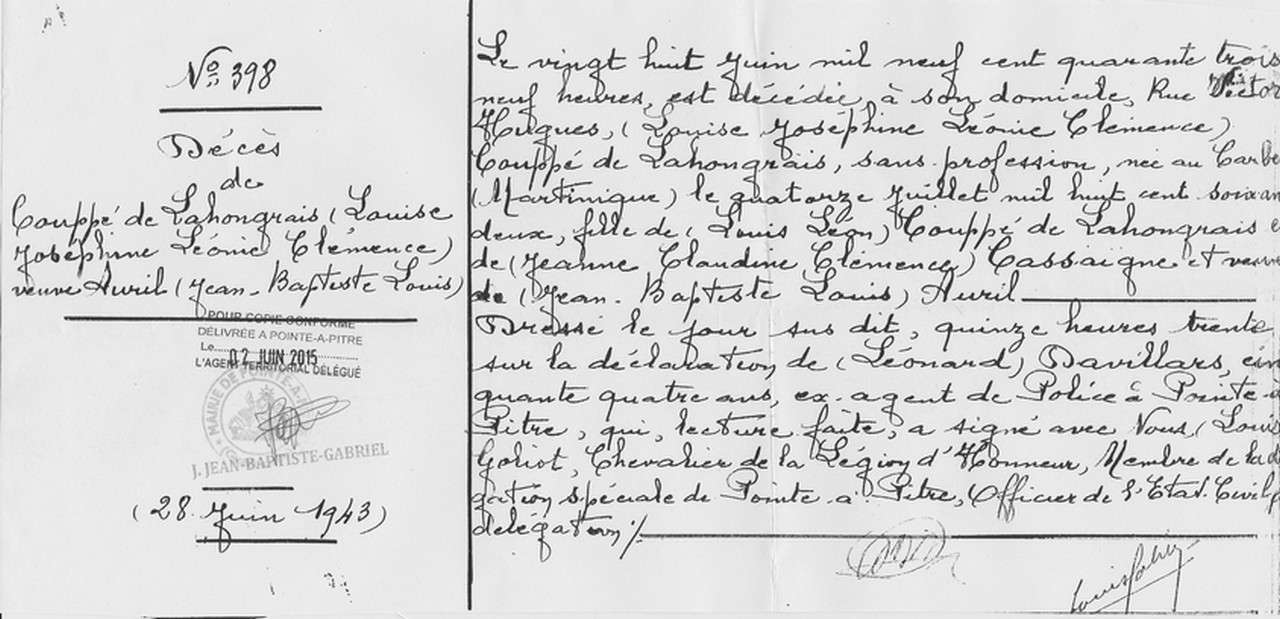 No 398
Décès
de
Couppé de Lahongrais (Louise
Joséphine Léonie Clémence)
veuve Avril (Jean-Baptiste Louis)
POUR COPIE CONFORME
DÉLIVRÉE A POINTE-A-PITRE
Le 02 JUIN 2015
L'AGENT TERRITORIAL DÉLÉGUÉ
MAIRIE DE POINTE-A-
J. JEAN-BAPTISTE-GABRIEL
(28 Juin 1943)
Le vingt huit Juin mil neuf cent quarante trois
neuf heures, est décédée, à son domicile, Rue Victor
Hugues, (Louise Joséphine Léonie Clémence)
Couppé de Lahongrais, sans profession, née au Carbe
(Martinique) le quatorze Juillet mil huit cent soixan
deux, fille de (Louis Léon) Couppé de Lahongrais e
de (Jeanne Claudine Clémence) Cassaigne et veuve
de (Jean-Baptiste Louis) Avril
Dressé le jour sus dit, quinze heures trente
sur la déclaration de (Léonard) Davillars, cin
quante quatre ans, ex-agent de Police à Pointe-a
Pitre, qui, lecture faite, a signé avec Nous, (Louis
Goliot, Chevalier de la Légion d'Honneur, Membre de la dé
gation spéciale de Pointe-à-Pitre, Officier de l'Etat-Civil p
délégation ./.